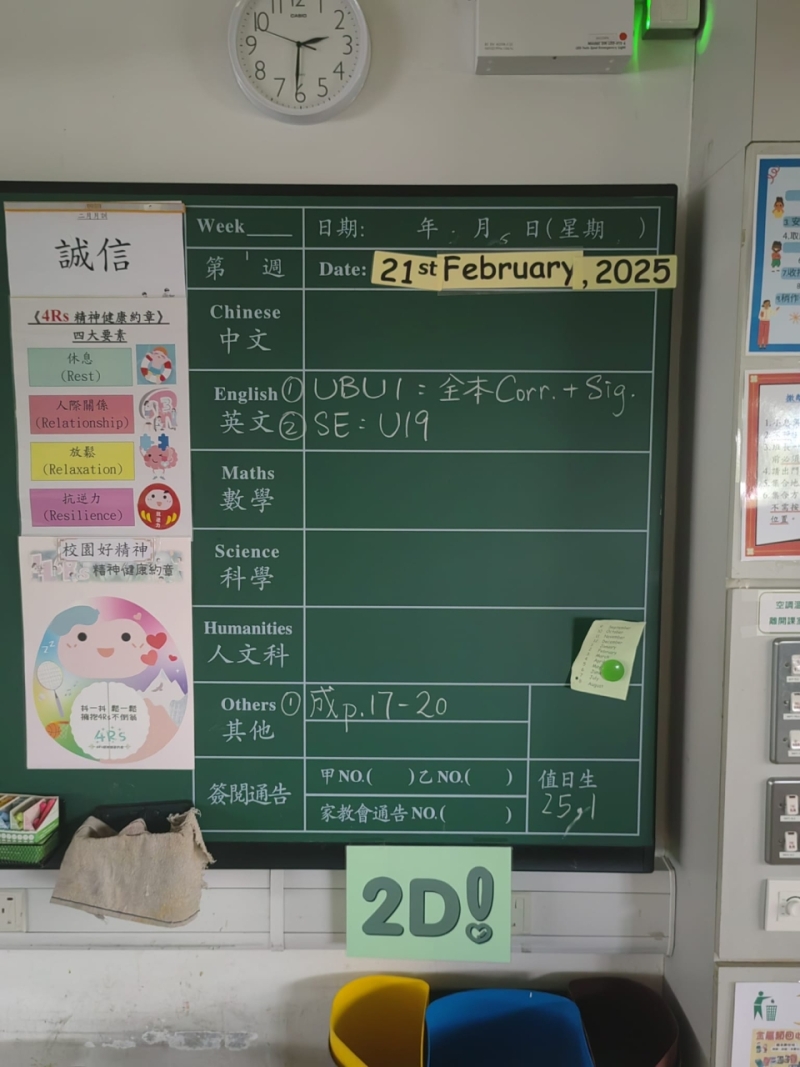 CASIO
二月月訓
誠信
《4Rs 精神健康約章》
四大要素
休息
(Rest)
人際關係
(Relationship)
放鬆
(Relaxation)
抗逆力
(Resilience)
校園好精神
精神健康約章
抖一抖 鬆一鬆
擁抱4Rs不倒翁
4Rs
Week____ 日期: 年 月 日(星期 )
第 週 Date: 21st February, 2025
Chinese
中文
English ① UBU1 : 全本Corr. + Sig.
英文 ② SE : U19
Maths
數學
Science
科學
Humanities
人文科
Others ① 成p.17-20
其他
簽閱通告 甲NO.( )乙NO.( ) 值日生
家教會通告NO.( ) 25,1
2D!